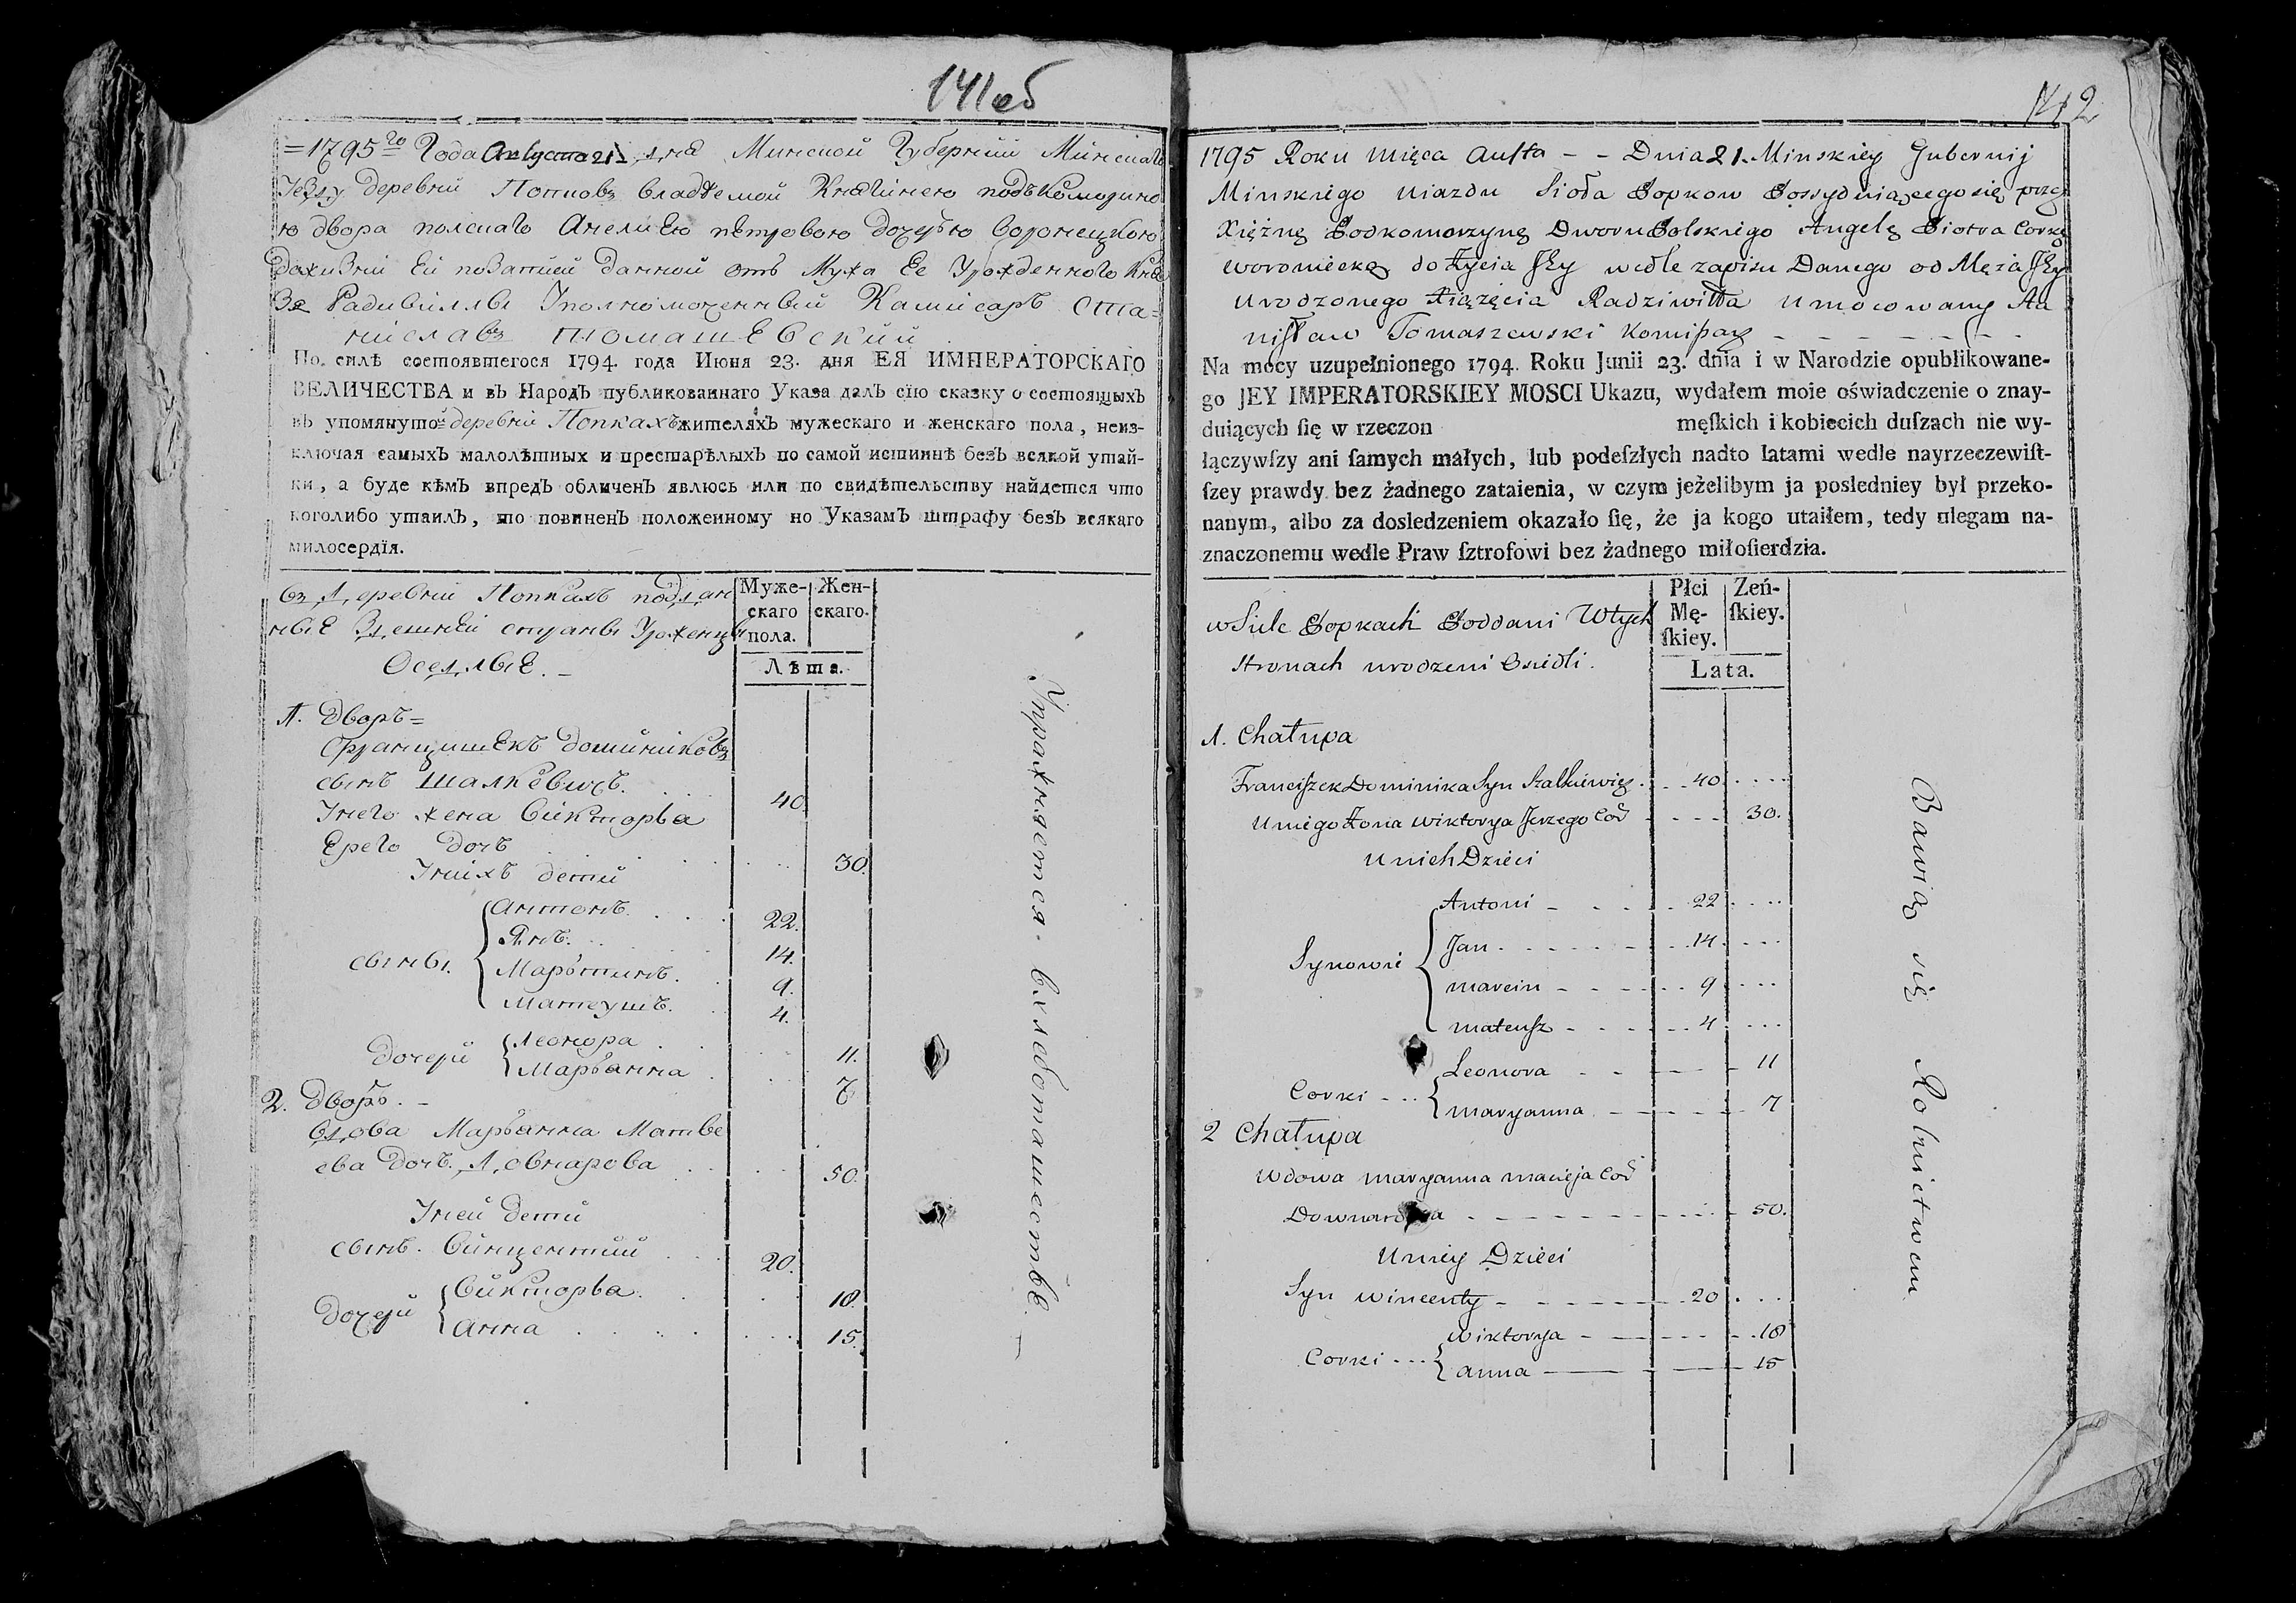 141об
=1795го Года Августа 21 дня Минской Губернии Минскаго
Уезду деревни Попков владѣемой Княгинею подъкоморино
ю двора полскаго Анелиею петровою дочерью воронецкою
Уполномоченный Камисаръ Ста=
ниславъ Томашевский
По силѣ состоявшегося 1794. года Июня 23. дня ЕЯ ИМПЕРАТОРСКАГО
ВЕЛИЧЕСТВА и въ Народъ публикованнаго Указа далъ сїю сказку о состоящыхъ
въ упомянутой деревни Попкахъ жителяхъ мужескаго и женскаго пола, неиз-
ключая самыхъ малолѣтныхъ и престарѣлыхъ по самой истиннѣ безъ всякой утай-
ки, а буде кѣмъ впредъ обличенъ явлюсь или по свидѣтельству найдется что
коголибо утаилъ, то повиненъ положенному по Указамъ штрафу безъ всякаго
милосердїя.
въ деревни Попкахъ поддан
ные здешней страны уроженцы
Оседлые. -
Муже-
скаго
пола.
Жен-
скаго.
Лѣта.
1. Дворъ=
Францишекъ доминиковъ
сынъ Шалкевичъ. 40.
Унего жена Викторыа
Ерего дочь 30.
Унихъ дети
сыны. Антонъ. 22.
Янъ. 14.
Марьтинъ. 9.
Матеушъ. 4.
дочери Леонора 11.
Марьанна 7
2. Дворъ. -
Вдова Марьанна Матве
ева дочь Довнарова 50.
Уней дети
сынъ. Винцентий 20.
дочери Викторыа. 18.
Анна 15.
Упражняется. вхлебопашестве -
142
1795 Roku Mięca Austa - - Dnia 21. Minskiey Gubernij
Minskiego Uiazdu Sioła Popkow Possyduiącegosię przez
Xiężnę Podkomorzynę Dworu Polskiego Angelę Piotra Corkę
Woroniecką do Życia Jey wedle zapisu Danego od Męża Jey
Urodzonego Xiążęcia Radziwiłła Umocowany Sta
nisław Tomaszewski Komissarz - - - - - -
Na mocy uzupełnionego 1794. Roku Junii 23. dnia i w Narodzie opublikowane-
go JEY IMPERATORSKIEY MOSCI Ukazu, wydałem moie oświadczenie o znay-
duiących ſię w rzeczon męſkich i kobiecich duſzach nie wy-
łączywſzy ani ſamych małych, lub podeſzłych nadto latami wedle nayrzeczewiſt-
ſzey prawdy bez żadnego zataienia, w czym jeżelibym ja posledniey był przeko-
nanym, albo za dosledzeniem okazało ſię, że ja kogo utaiłem, tedy ulegam na-
znaczonemu wedle Praw ſztrofowi bez żadnego miłoſierdzia.
w Siele Popkach Poddani Wtych
Stronach urodzeni Osiedli.
Płci
Mę-
ſkiey.
Zeń-
ſkiey.
Lata.
1. Chałupa
Franciszek Dominika Syn Szalkiewicz. 40
Uniego Żona Wiktorya Jerzego Cor 30.
Unich Dzieci
Synowie Antoni - 22
Jan. 14
Marcin - 9
Mateusz - 4
Corki Leonora 11
Maryanna 7
2 Chałupa
Wdowa Maryanna Macieja Cor
Downarowa 50.
Uniey Dzieci
Syn Wincenty - 20
Corki Wiktorya - 18
Anna 15
Bawią się Rolnictwem